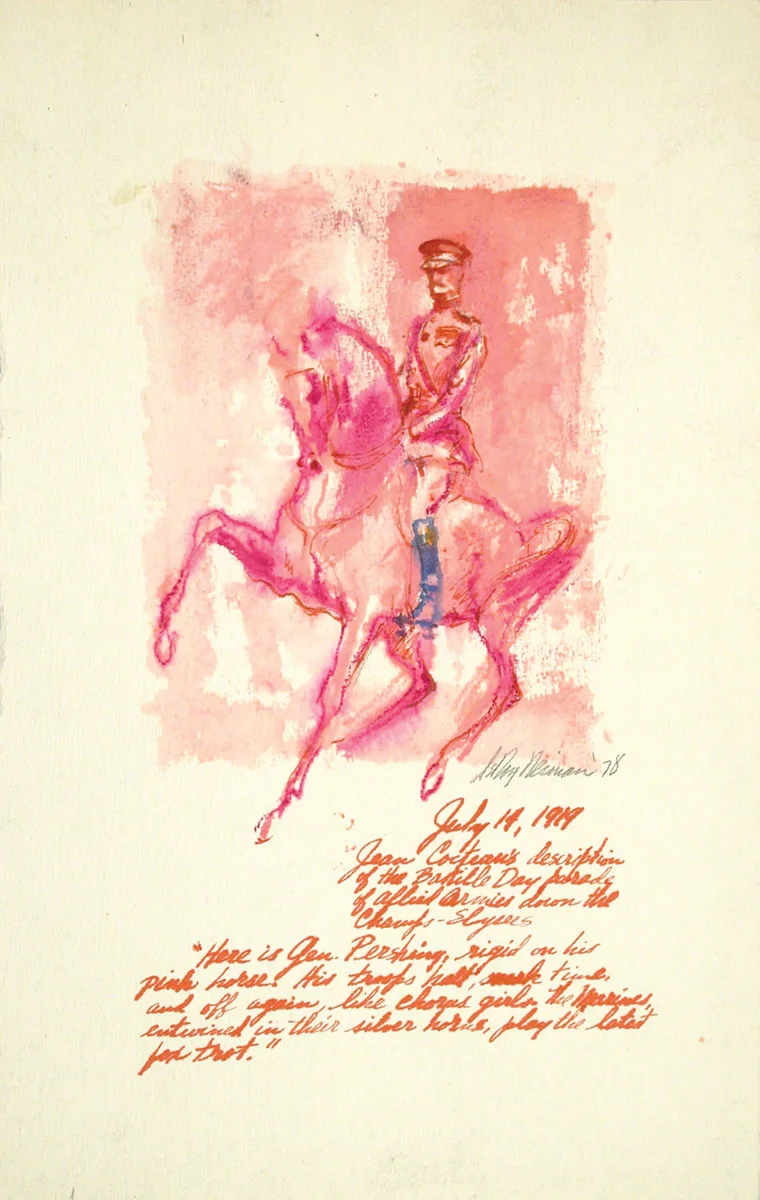 LeRoy Neiman '78
July 14, 1919
Jean Cocteau's description
of the Bastille Day parade
of allied armies down the
Champs-Elysees
"Here is Gen. Pershing, rigid on his
pink horse. His troops halt, mark time,
and off again, like chorus girls. The Marines,
entwined in their silver horns, play the latest
fox trot."